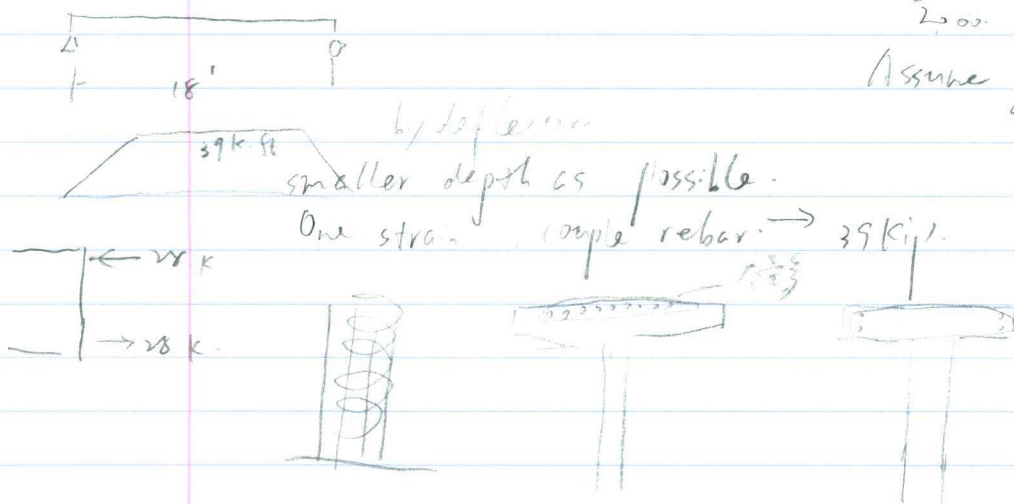 2.00.
18'
Assume
39 k.ft
by deflection
smaller depth as possible.
One strain couple rebar. → 39 Kips.
← 28 K
→ 28 K.